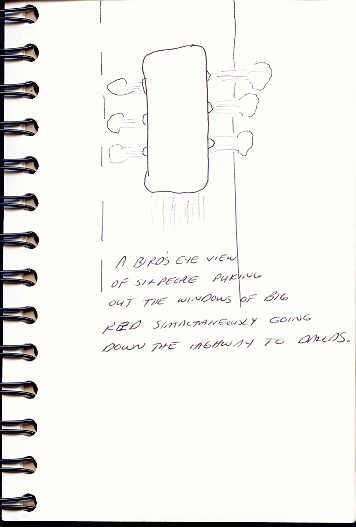 A BIRD'S EYE VIEW
OF SIX PEOPLE PUKING
OUT THE WINDOWS OF BIG
RED SIMALTANEOUSLY GOING
DOWN THE HIGHWAY TO DALLAS.